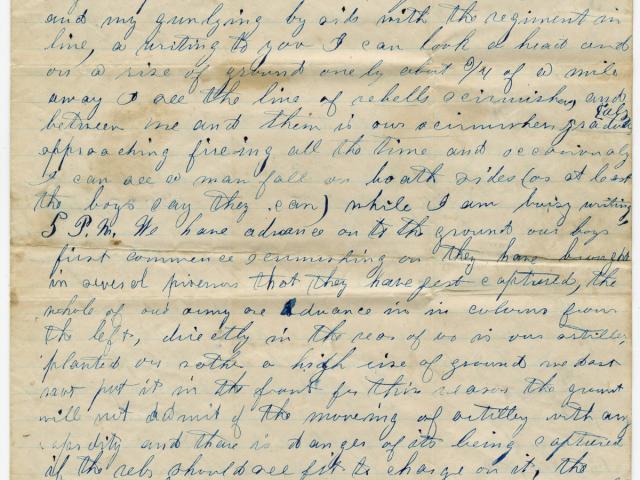 and my gun lying by side with the regiment in
line, a writing to you I can look a head and
on a rise of ground onely about 3/4 of a mile
away I see the line of rebells scirmishers, and
between me and them is our scirmishers gradualy
approaching fireing all the time and occasionaly
I can see a man fall on boath sides (or at least
the boys say they can) while I am buisy writing
5 P.M. We have advance on to the ground our boys
first commence scirmishing on they have brought
in severel prisenors that they have just captured, the
whole of our army are advance in in colums from
the left, directly in the rear of us is our artillery
planted on rather a high rise of ground we dast
not put it in the front for this reason the ground
will not admit of the moveing of artilley with any
rapidity and there is danger of its being captured
if the rebs should see fit to charge on it, the